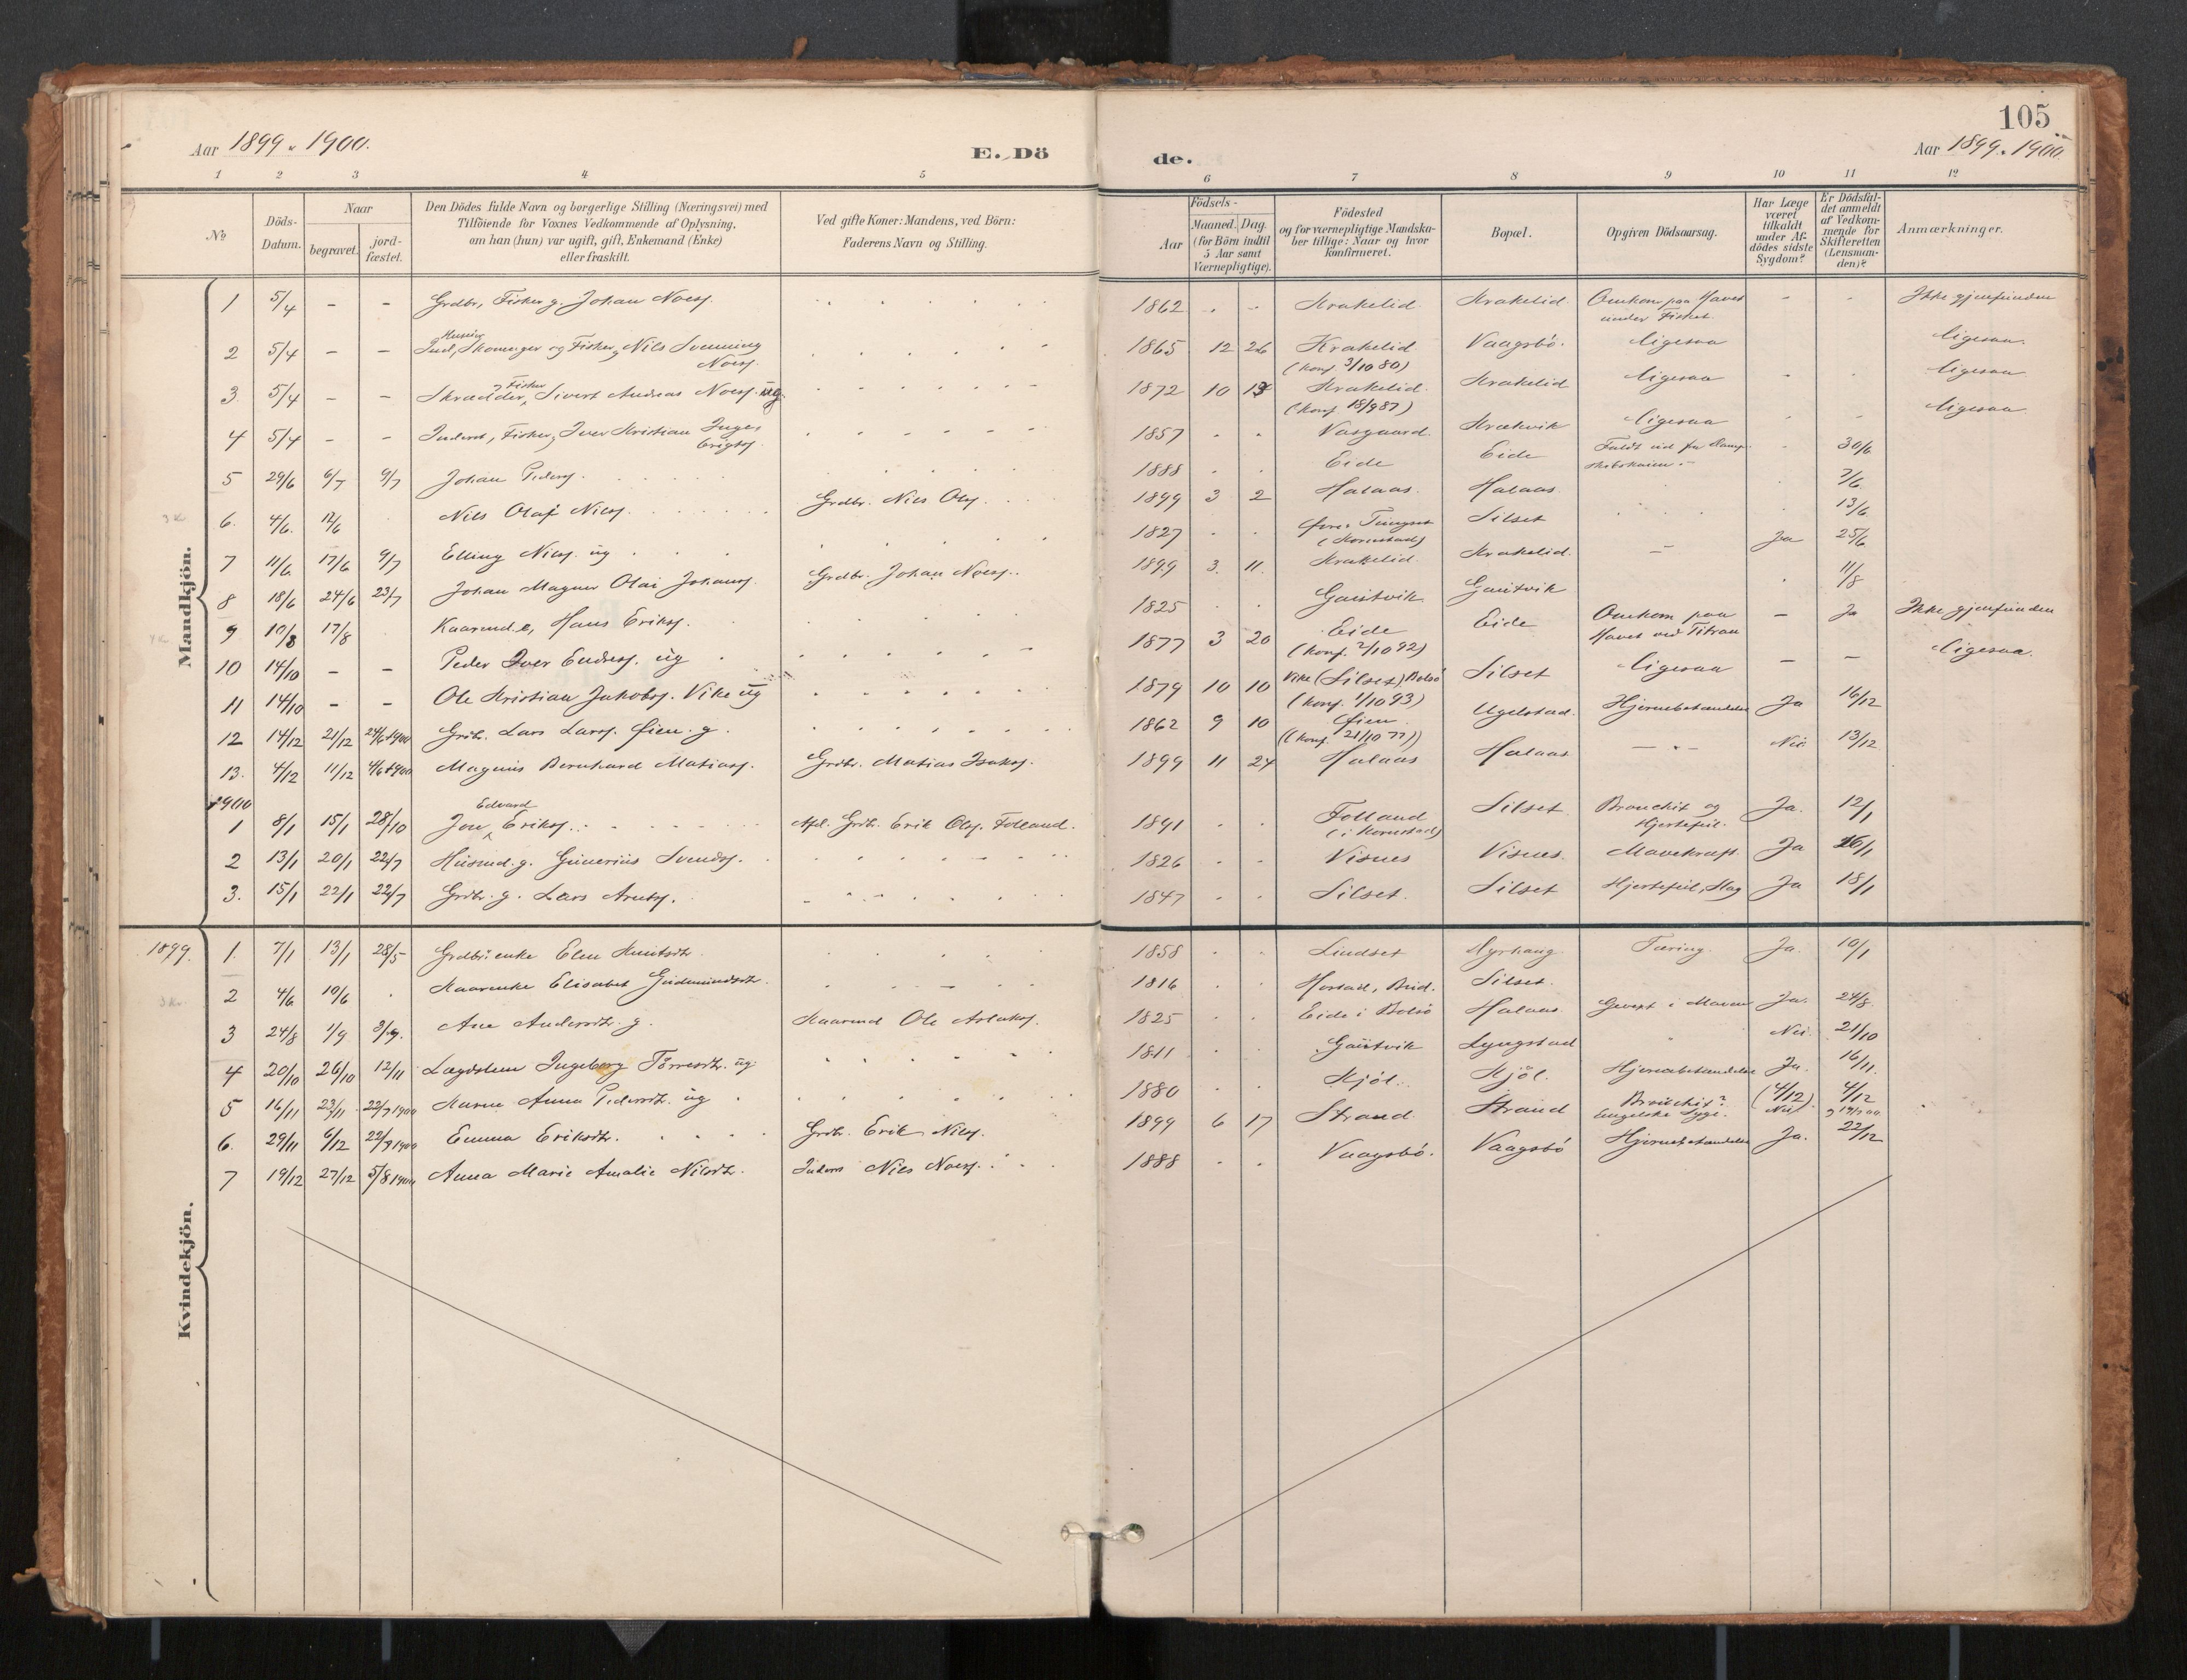 105
Aar 1899. 1900.
E. Dö
de.
Aar 1899. 1900.
1 2 3 4 5
6 7 8 9 10 11 12
№
Döds-Datum.
Naar
begravet.
jord-fæstet.
Den Dödes fulde Navn og borgerlige Stilling (Næringsvei) med
Tilföiende for Voxnes Vedkommende af Oplysning,
om han (hun) var ugift, gift, Enkemand (Enke)
eller fraskilt.
Ved gifte Koner: Mandens, ved Börn:
Faderens Navn og Stilling.
Födsels-
Aar
Maaned. Dag.
(for Börn indtil
5 Aar samt
Værnepligtige).
Födested
og for værnepligtige Mandska-
ber tillige: Naar og hvor
konfirmeret.
Bopæl.
Opgiven Dödsaarsag.
Har Læge
været
tilkaldt
under Af-
dödes sidste
Sygdom?
Er Dödsfal-
det anmeldt
af Vedkom-
mende for
Skifteretten
(Lensman-
den)?
Anmærkninger.
Mandkjön.
1 5/4 - - Grdbr, Fisker g. Johan Noesj. 1862 Krakelid Krakelid Omkom paa Havet - - Ikke gjenfunden
under Fisket.
2 5/4 - - Skomager og Fisker, Nils Svenning 1865 12 26 Krakelid Vaagsbö. ligesaa ligesaa.
Noesj. (konf. 3/10 80)
Fisker
3 5/4 - - Skrædder, Sivert Andreas Noesj. ug. 1872 10 Krakelid Krakelid ligesaa ligesaa
(konf. 18/9 87)
4 5/4 - - Inderst, Fisker, Iver Kristian Inge- 1857 Vasgaard. Krækvik ligesaa ligesaa
brigtsj.
5 29/6 6/7 9/7 Johan Pedersj. 1888 Eide Eide Faldt ud fra Damp- 30/6
skibskaien.
6. 4/6. 12/6 Nils Olaf Nilsj. Grdbr. Nils Olsj. 1899 3 2 Halaas. Halaas. 7/6
7 11/6 17/6 9/7 Elling Nilsj. ug 1827 Silset 13/6
(Kornstad)
8 18/6 24/6 23/7 Johan Magnus Olai Johansj. Grdbr. Johan Noesj. 1899 3. 11. Krakelid. Krakelid. - Ja 25/6
9 10/8 17/8 Kaarmd. e, Hans Eriksj. 1825 Gaustvik Gaustvik 11/8
10 14/10 - - Peder Iver Endresj. ug 1877 3 20 Eide Eide Omkom paa - Ja Ikke gjenfunden
(konf. 2/10 92) Havet ved Titran
11 14/10 - - Ole Kristian Jakobsj. Vike ug 1879 10 10 Vike (Silset) Bolsö Silset ligesaa - - ligesaa.
(konf. 1/10 93)
12 14/12 21/12 24/6 1900 Grdbr. Lars Larsj. Öien. g. 1862 9 10 Öien. Ugelstad. Hjernebetændelse Ja 16/12
(konf. 21/10 77)
13. 4/12 11/12 4/6 1900 Magnus Bernhard Matiasj. Grdbr. Matias Isaksj. 1899 11 24 Halaas Halaas - Nei 13/12
1900
Edvard
1 8/1 15/1 28/10 Jon Eriksj. Afd. Grdbr. Erik Olsj. Folland. 1891 Folland Silset Bronchit og Ja. 12/1
(i Kornstad) Hjertefeil.
2 13/1 20/1 22/7 Husmd. g. Gunerius Svendsj. 1826 Visnes Visnes. Mavekræft. Ja 16/1
3. 15/1 22/1 22/7 Grdbr. g. Lars Arntsj. 1847 Silset. Silset Hjertefeil, Slag Ja 18/1
Kvindekjön.
1899. 1. 7/1 13/1 28/5 Grdbr.enke Elen Knutsdtr. 1858 Lindset Myrhaug. Tæring. Ja. 10/1
2 4/6 10/6 Kaarenke Elisabet Gudmundsdtr. 1816 Horstad, Bud. Silset.
3 24/8 1/9 3/9. Ane Andersdtr. g. Kaarmd Ole Aslaksj. 1825 Eide i Bolsö Halaas Ja. 24/8.
4 20/10 26/10 12/11 Lægdslem Ingeborg Törresdtr. ug. 1811 Gaustvik Lyngstad Nei. 21/10
5 16/11 23/11 22/7 1900 Karen Anna Pedersdtr. ug 1880 Kjöl. Kjöl. Hjernebetændelse Ja. 16/11.
6. 29/11 6/12 22/7 1900 Emma Eriksdtr. Grdbr. Erik Nilsj. 1899 6 17 Strand. Strand Bronchit? (4/12) 4/12
Engelske Syge. Nei)
7 19/12 27/12 5/8 1900 Anna Marie Amalie Nilsdtr. Inders Nils Noesj. 1888 Vaagsbö. Vaagsbö Hjernebetændelse Ja. 22/12